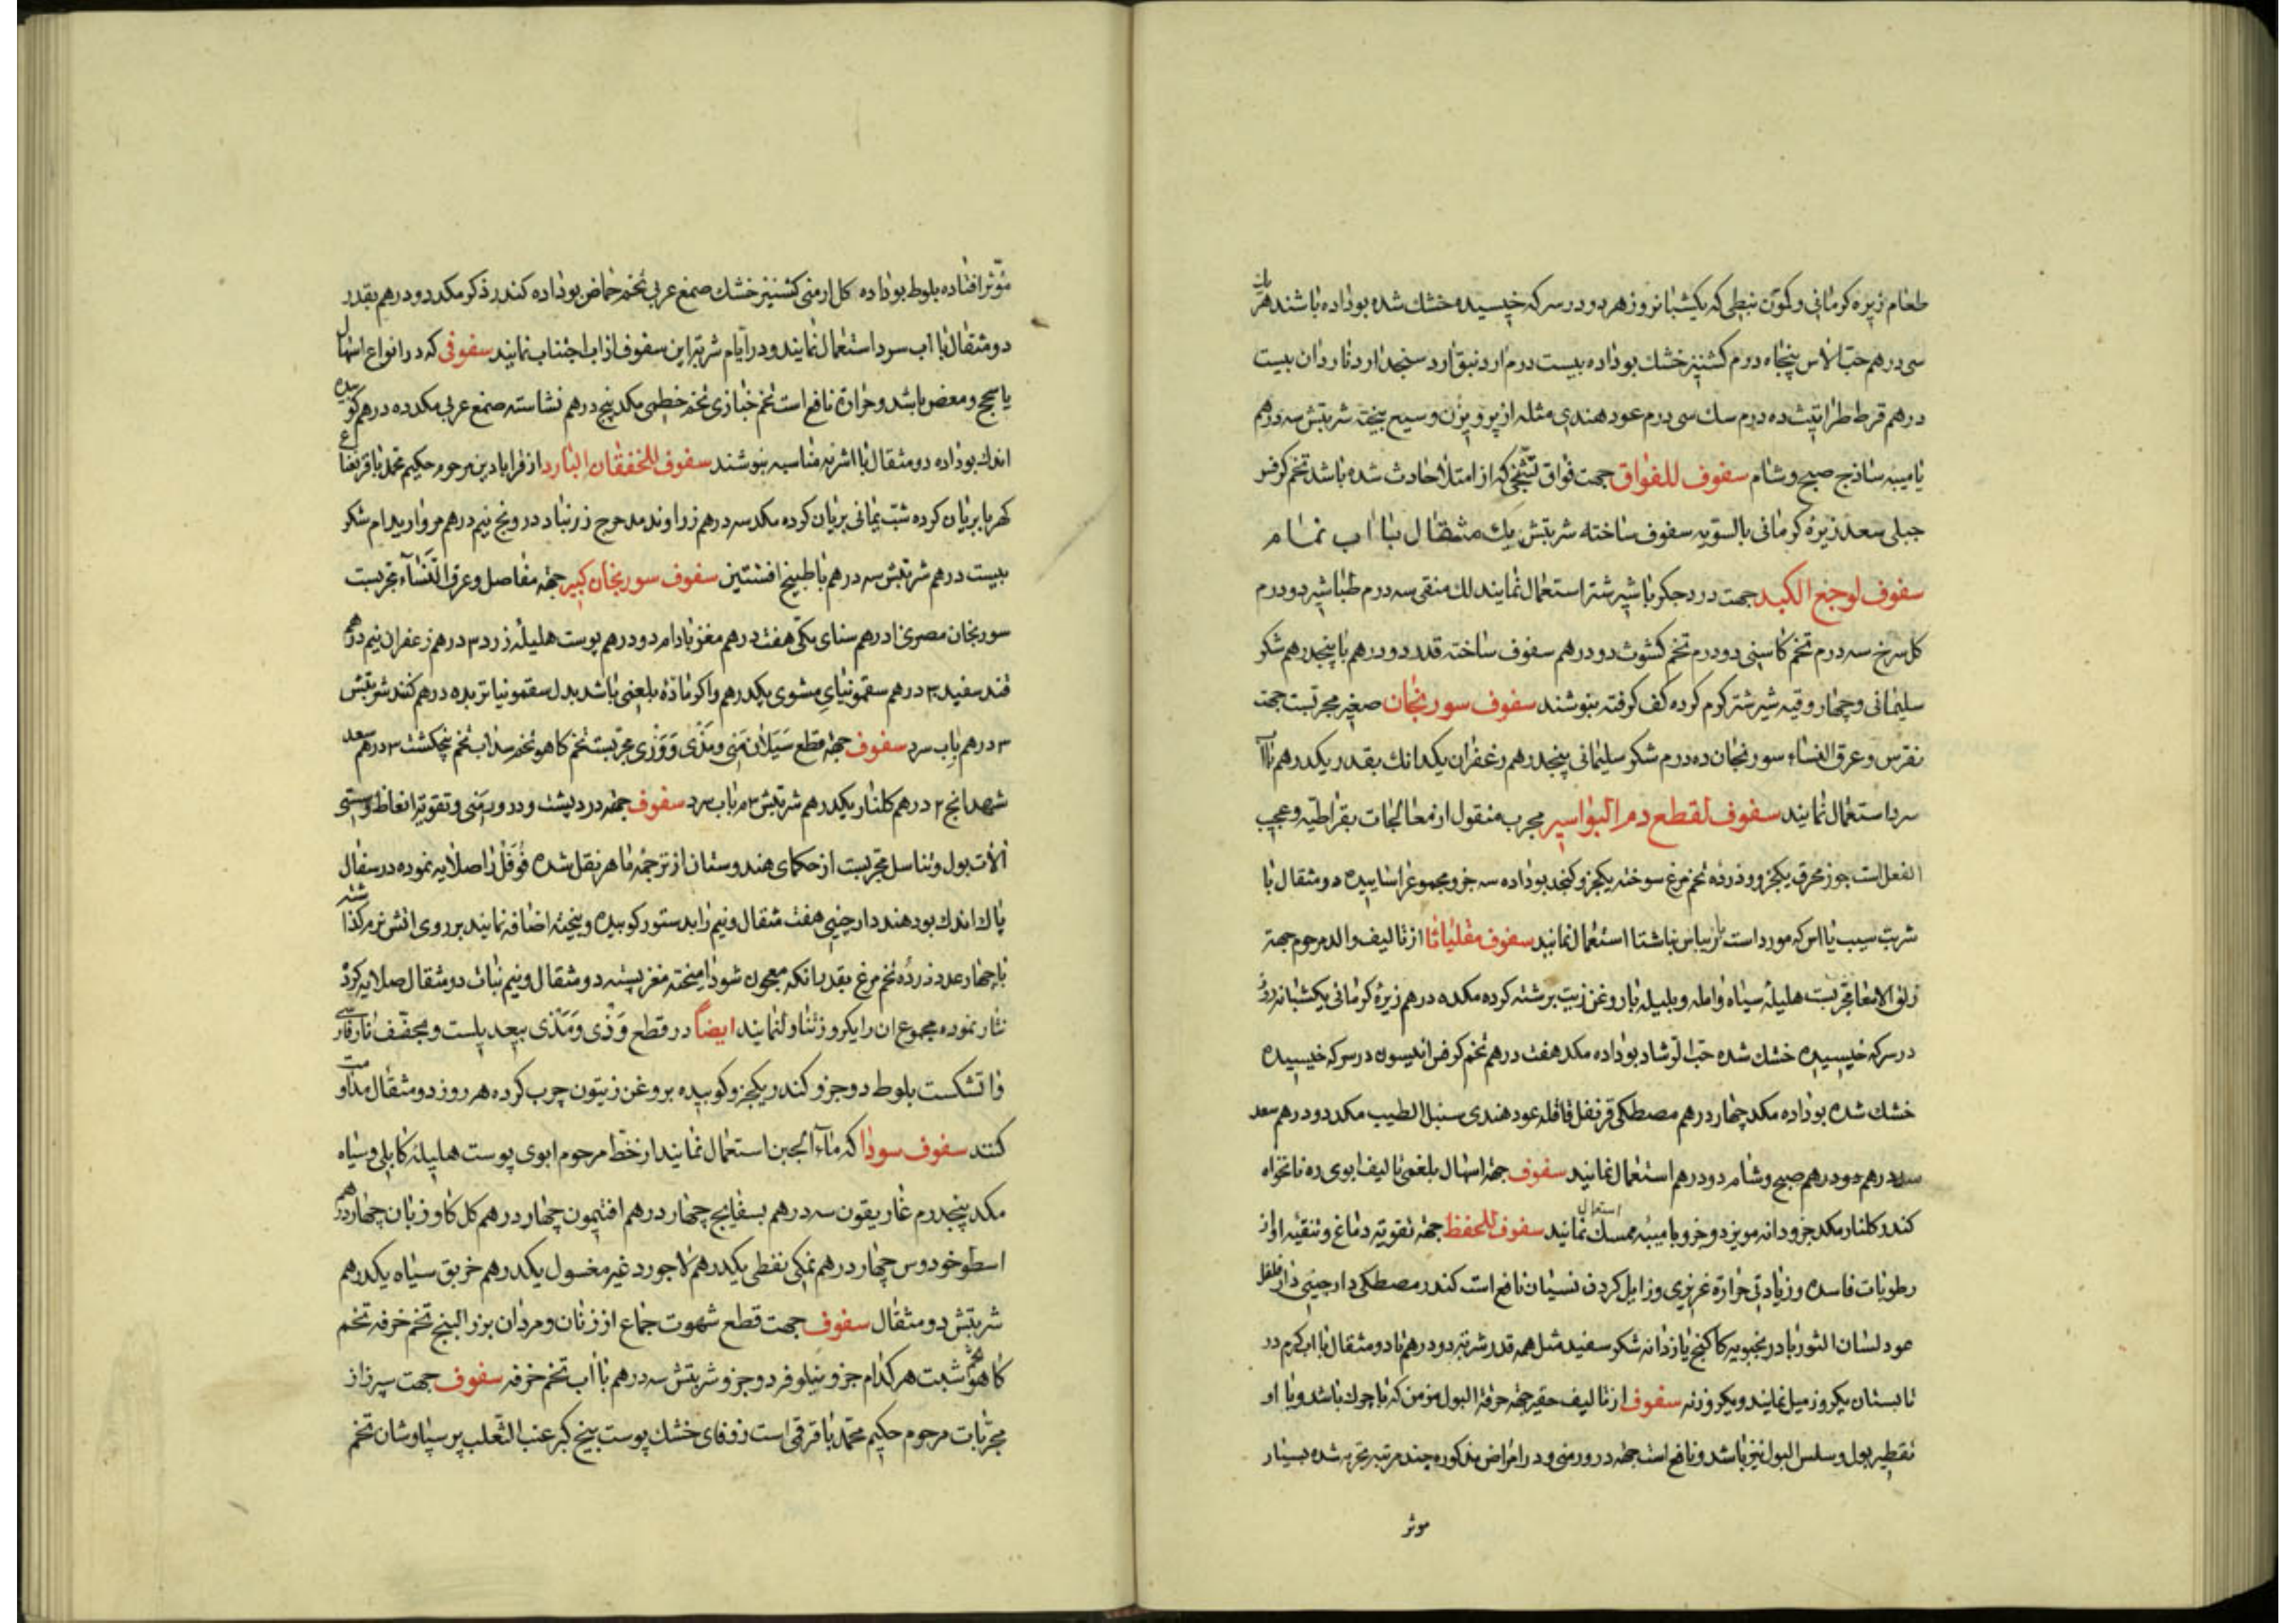 طعام زیره کرمانی و کمون نبطی که یکشبانروز هر دو در سرکه خیسیده خشک شده بوداده باشند هر یک
سی درهم حب الاس پنجاه درم کشنیز خشک بوداده بیست درم ارد نبق ارد سنجد ارد ناردان بیست
درهم قرط طراثیث ده درم سک سی درم عود هندی مثله از پرویزن وسیع بیخته شربتش سه درهم
یا میبه ساذج صبح و شام سفوف للفواق جهت فواق که از امتلا حادث شده باشد تخم کرفس
جبلی سعد زیره کرمانی بالسویه سفوف ساخته شربتش یک مثقال با اب نمام
سفوف لوجع الکبد جهت درد جکر با شیر شتر استعمال نمایند لک منقی سه درم طباشیر دو درم
کل سرخ سه درم تخم کاسنی دو درم تخم کشوث دو درهم سفوف ساخته قدر دو درهم با پنجدرهم شکر
سلیمانی و چهار وقیه شیر شتر کرم کرده کف کرفته بنوشند سفوف سورنجان صغیر مجربست جهت
نقرس و عرق النساء سورنجان ده درم شکر سلیمانی پنجدرهم زعفران یکدانک بقدر یکدرهم با اب
سرد استعمال نمایند سفوف لقطع دم البواسیر مجرب منقول از معالجات بقراطیه و عجیب
الفعل است جوز محرق یکجزو و زرده تخم مرغ سوخته یکجزو کنجد بوداده سه جزو مجموع را ساییده دو مثقال با
شربت سیب یا اس که مورد است یا ریباس ناشتا استعمال نمایند سفوف مقلیاثا از تالیف والد مرحوم جهة
زلق الامعا مجربست هلیله سیاه و امله و بلیله با روغن زیت برشته کرده مکد ده درهم زیره کرمانی یکشبانه روز
در سرکه خیسیده خشک شده حب الرشاد بوداده مکد هفت درهم تخم کرفس انیسون در سرکه خیسیده
خشک شده بوداده مکد چهار درهم مصطکی قرنفل قاقله عود هندی سنبل الطیب مکد دو درهم سعد
سه درهم دو درهم صبح و شام دو درهم استعمال نمایند سفوف جهة اسهال بلغمی تالیف ابوی ره نانخواه
کندر کلنار مکد جزو دانه مویز دو جزو با میبه ممسک استعمال نمایند سفوف للحفظ جهة تقویة دماغ و تنقیه او از
رطوبات فاسده و زیادتی حرارة غریزی و زایل کردن نسیان نافع است کندر مصطکی دارچینی دارفلفل
عود لسان الثور بادرنجبویه کاکنج رازیانه شکر سفید مثل همه قدر شربة دو درهم تا دو مثقال با اب کرم در
تابستان یکروز میل نمایند و یکروز نه سفوف از تالیف حقیر جهة حرقة البول مزمن که با چرک باشد و با او
تقطیر بول و سلس البول نیز باشد و نافع است جهة درور منی و در امراض مذکوره چند مرتبه تجربه شده بسیار
موثر
مؤثر افتاده بلوط بوداده کل ارمنی کشنیز خشک صمغ عربی تخم حماض بوداده کندر ذکر مکد دو درهم بقدر
دو مثقال با اب سرد استعمال نمایند و در ایام شربة این سفوف از اب اجتناب نمایند سفوفی که در انواع اسهال
با سحج و مغص باشد و حرارة نافع است تخم خبازی تخم خطمی مکد پنج درهم نشاسته صمغ عربی مکد ده درهم کوبیده
اندک بوداده دو مثقال با اشربه مناسبه بنوشند سفوف للخفقان البارد از قرابادین مرحوم حکیم محمد باقر نعناع
کهربا بریان کرده شب یمانی بریان کرده مکد سه درهم زراوند مدحرج زرنباد درونج نیم درهم مروارید ام شکر
بیست درهم شربتش سه درهم با طبیخ افسنتین سفوف سورنجان کبیر جهة مفاصل و عرق النساء مجربست
سورنجان مصری درهم سنای مکی هفت درهم مغز بادام دو درهم پوست هلیله زرد ۳ درهم زعفران نیم درهم
قند سفید ۳ درهم سقمونیای مشوی یکدرهم و اکر مادة بلغمی باشد بدل سقمونیا تربد ده درهم کنند شربتش
۳ درهم باب سرد سفوف جهة قطع سیلان منی و مذی و وذی مجربست تخم کاهو تخم سداب تخم پنجکشت ۳ درهم سعد
شهدانج ۲ درهم کلنار یکدرهم شربتش ۳ م باب سرد سفوف جهة درد پشت و درور منی و تقویة انعاظ و سستی
الات بول و تناسل مجربست از حکمای هندوستان از ترجمه ماهر نقل شده فوفل را صلایه نموده در سفال
پاک اندک بو دهند دارچینی هفت مثقال و نیم را بدستور کوبیده و بیخته اضافه نمایند بر روی اتش نرم کذاشته
با چهار عدد زرده تخم مرغ بقدریانکه معجون شود امیخته مغز پسته دو مثقال و نیم نبات دو مثقال صلایه کرده
نثار نموده مجموع ان را یکروز تناول نمایند ایضاً در قطع وذی و مذی بیعدیلست و مجفف
بلوط دو جزو کندر یکجزو کوبیده بروغن زیتون چرب کرده هر روز دو مثقال مداومت
کنند سفوف سودا که ماء الجبن استعمال نمایند از خط مرحوم ابوی پوست هلیله کابلی و سیاه
مکد پنجدرم غاریقون سه درهم بسفایج چهار درهم افتیمون چهار درهم کل کاوزبان چهار درهم
اسطوخودوس چهار درهم نمک نفطی یکدرهم لاجورد غیر مغسول یکدرهم خربق سیاه یکدرهم
شربتش دو مثقال سفوف جهت قطع شهوت جماع از زنان و مردان بزر البنج تخم خرفه تخم
کاهو تخم شبت هر کدام جزو نیلوفر دو جزو شربتش سه درهم با اب تخم خرفه سفوف جهت سپرز از
مجربات مرحوم حکیم محمد باقر قمی است زوفای خشک پوست بیخ کبر عنب الثعلب پرسیاوشان تخم